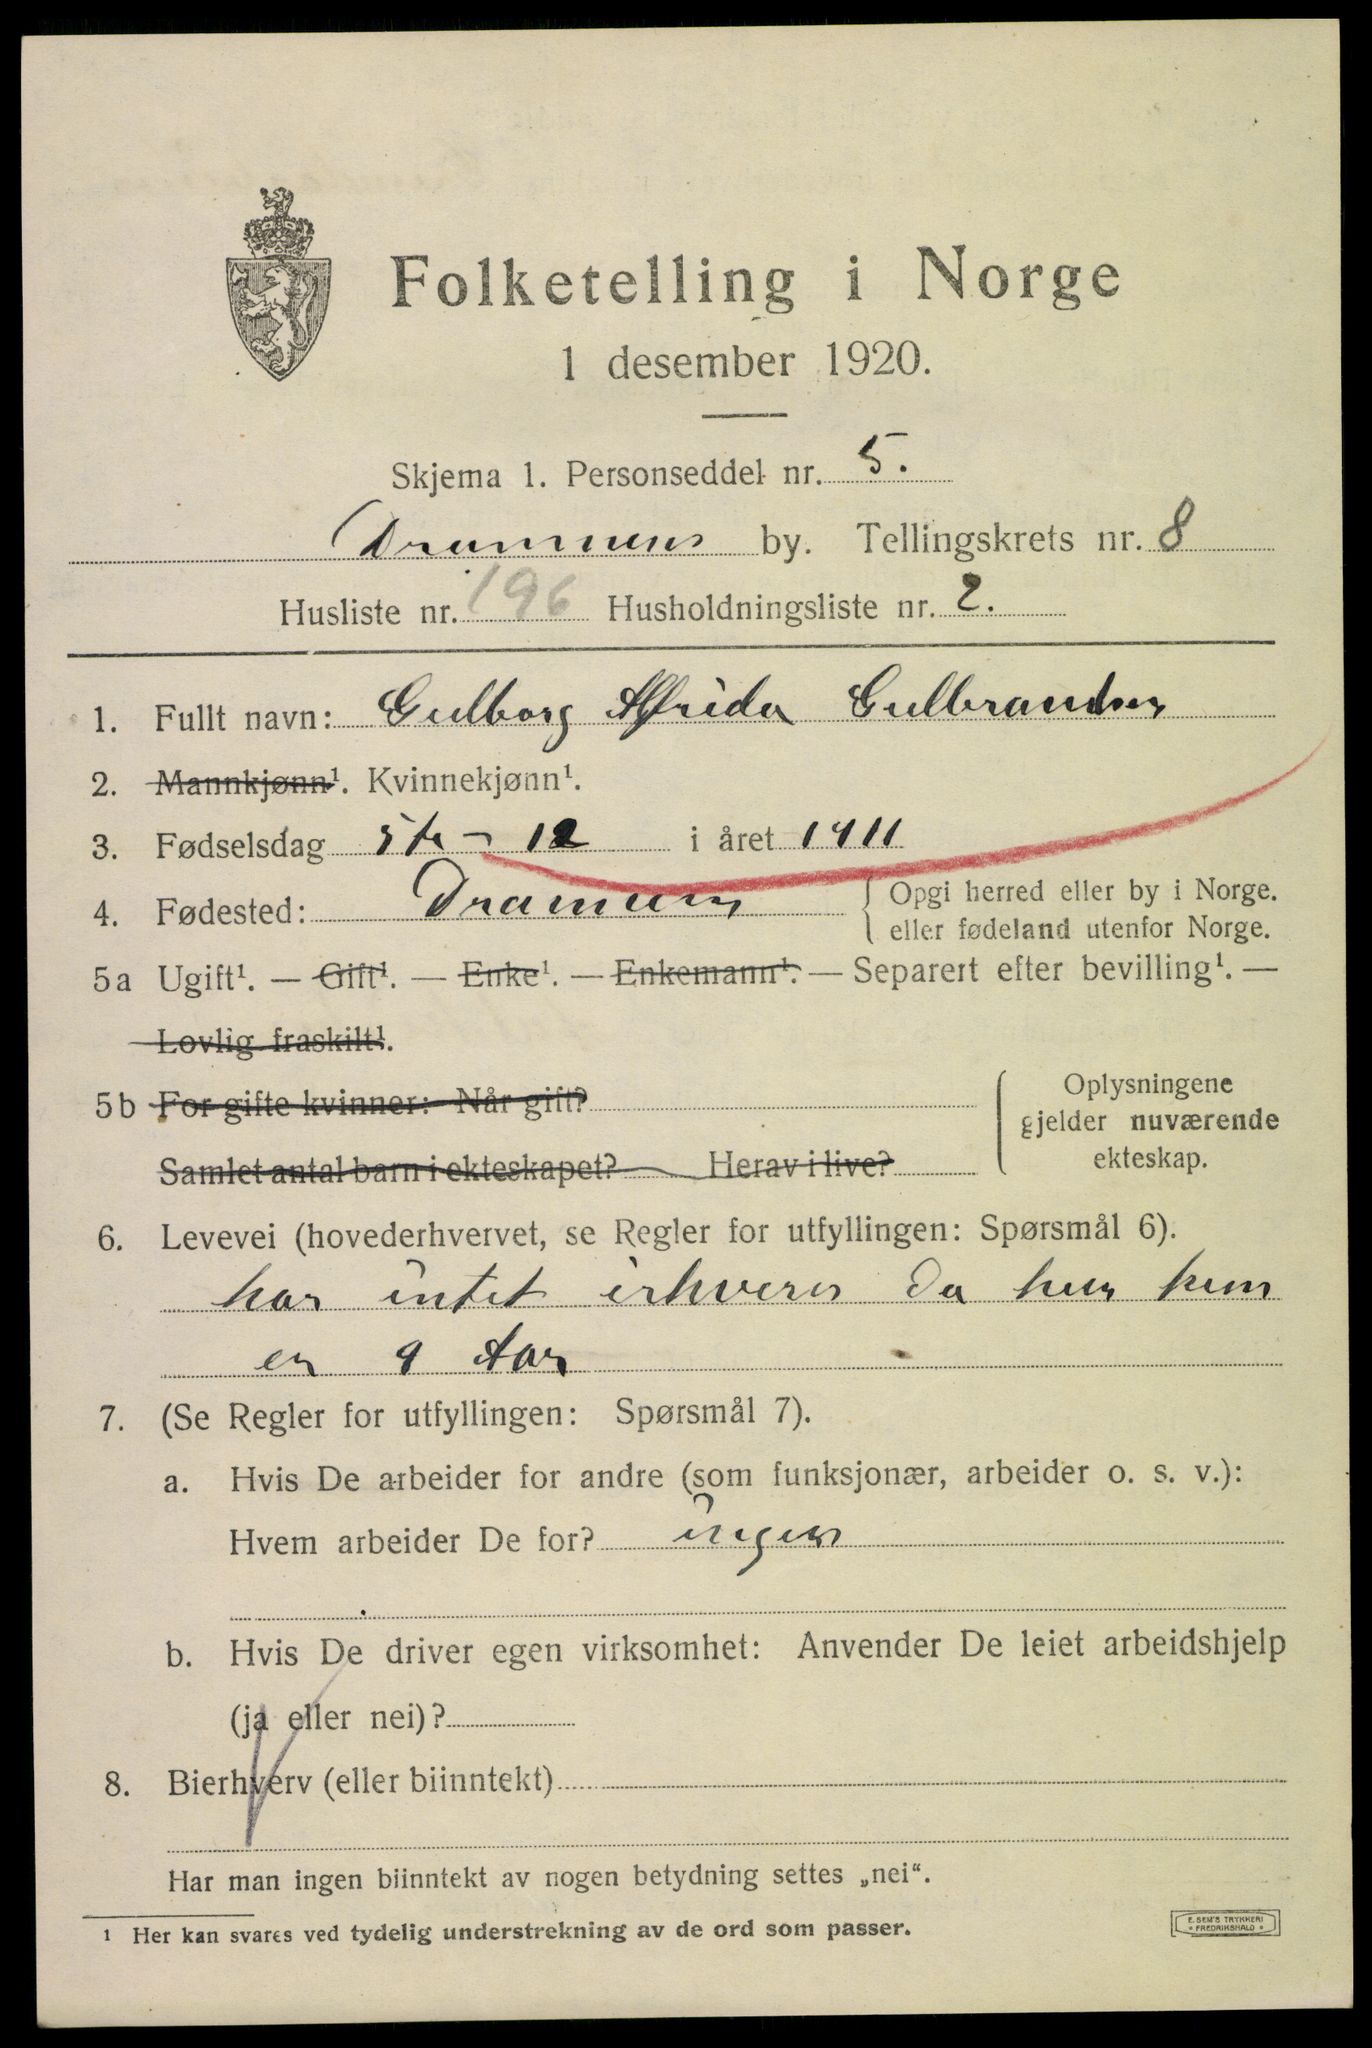 Folketelling i Norge
1 desember 1920.
Skjema 1. Personseddel nr. 5.
Drammens by. Tellingskrets nr. 8
Husliste nr. 196 Husholdningsliste nr. 2.
1. Fullt navn: Gulborg Alfrida Gulbrandsen
2. Mannkjønn¹. Kvinnekjønn¹.
3. Fødselsdag 5te - 12 i året 1911
4. Fødested: Drammen { Opgi herred eller by i Norge.
eller fødeland utenfor Norge.
5a Ugift¹. — Gift¹. — Enke¹. — Enkemann¹. — Separert efter bevilling¹. —
Lovlig fraskilt¹.
5b For gifte kvinner: Når gift?
Samlet antal barn i ekteskapet? Herav i live?
Oplysningene
gjelder nuværende
ekteskap.
6. Levevei (hovederhvervet, se Regler for utfyllingen: Spørsmål 6).
har intet erhverv da hun kun
er 9 Aar
7. (Se Regler for utfyllingen: Spørsmål 7).
a. Hvis De arbeider for andre (som funksjonær, arbeider o. s. v.):
Hvem arbeider De for? ingen
b. Hvis De driver egen virksomhet: Anvender De leiet arbeidshjelp
(ja eller nei)?
8. Bierhverv (eller biinntekt)
Har man ingen biinntekt av nogen betydning settes „nei“.
¹ Her kan svares ved tydelig understrekning av de ord som passer.
E. SEM'S TRYKKERI
FREDRIKSHALD